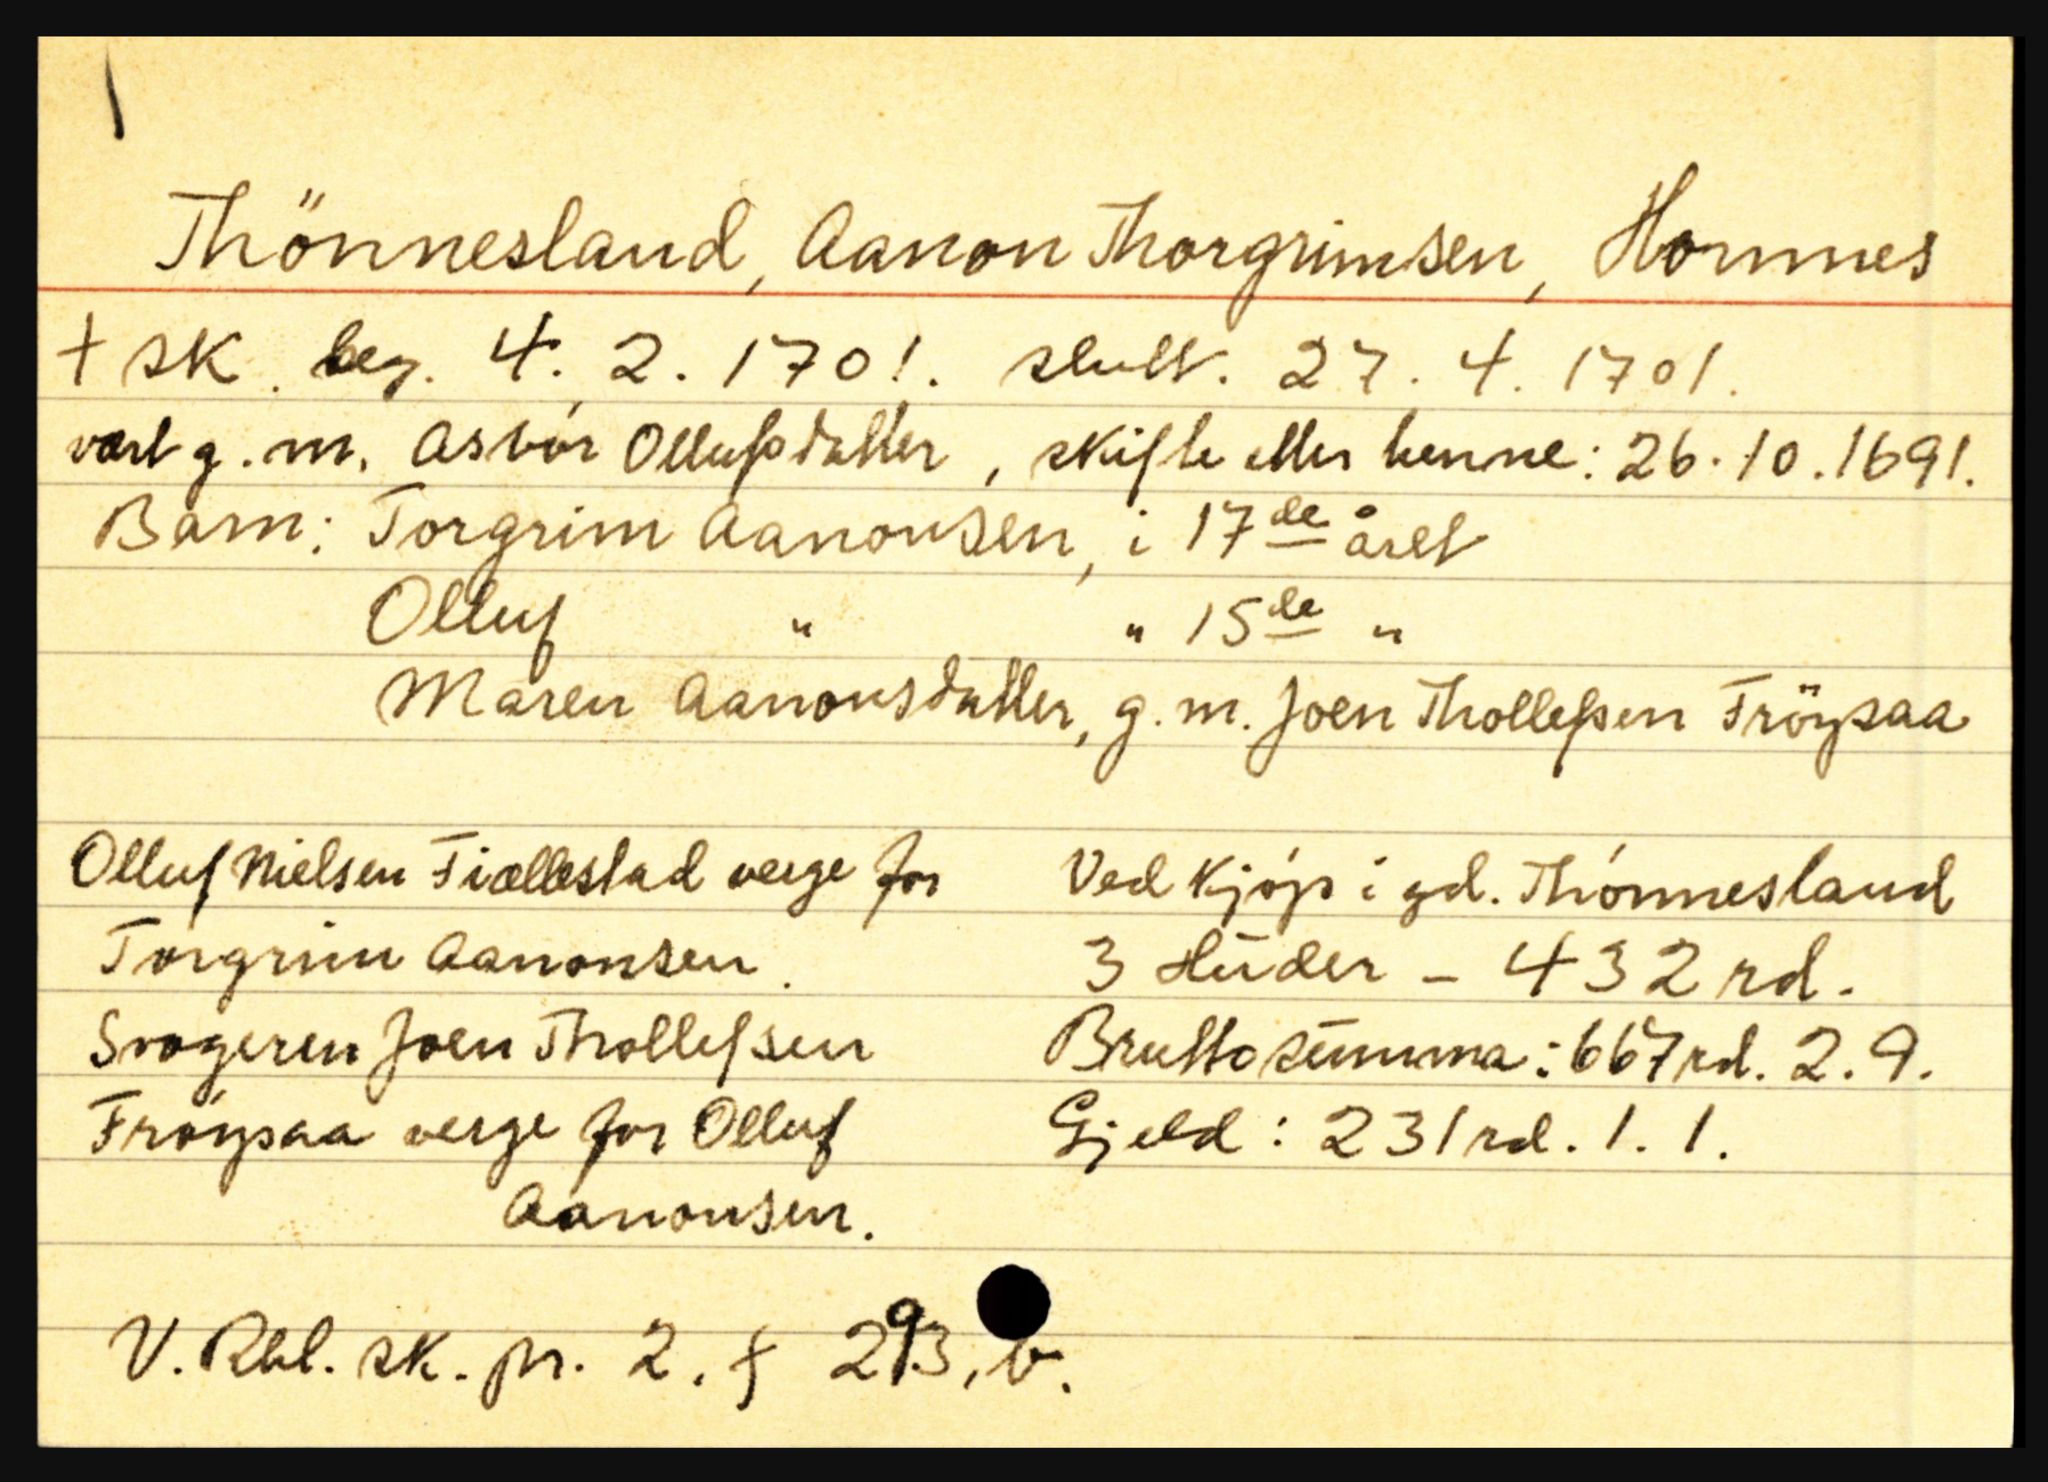 Thönnesland, Aanon Thorgrimsen, Hornnes
† sk. beg. 4. 2. 1701. slutt. 27. 4. 1701.
vart g. m. Asbór Ollufsdatter, skifte etter henne: 26. 10. 1691.
Barn: Torgrim Aanonsen, i 17de året
Olluf " " 15de "
Maren Aanonsdatter, g. m. Joen Thollefsen Fröysaa
Olluf Nielsen Fiællestad verge for
Torgrim Aanonsen.
Svogeren Joen Thollefsen
Fróysaa verge for Olluf
Aanonsen.
Ved Kjóp i gd. Thónnesland
3 Húder – 432 rd.
Bruttosúmma: 667 rd. 2. 9.
Gjeld: 231 rd. 1. 1.
V. Rbl. sk. pr. 2. f 293, b.